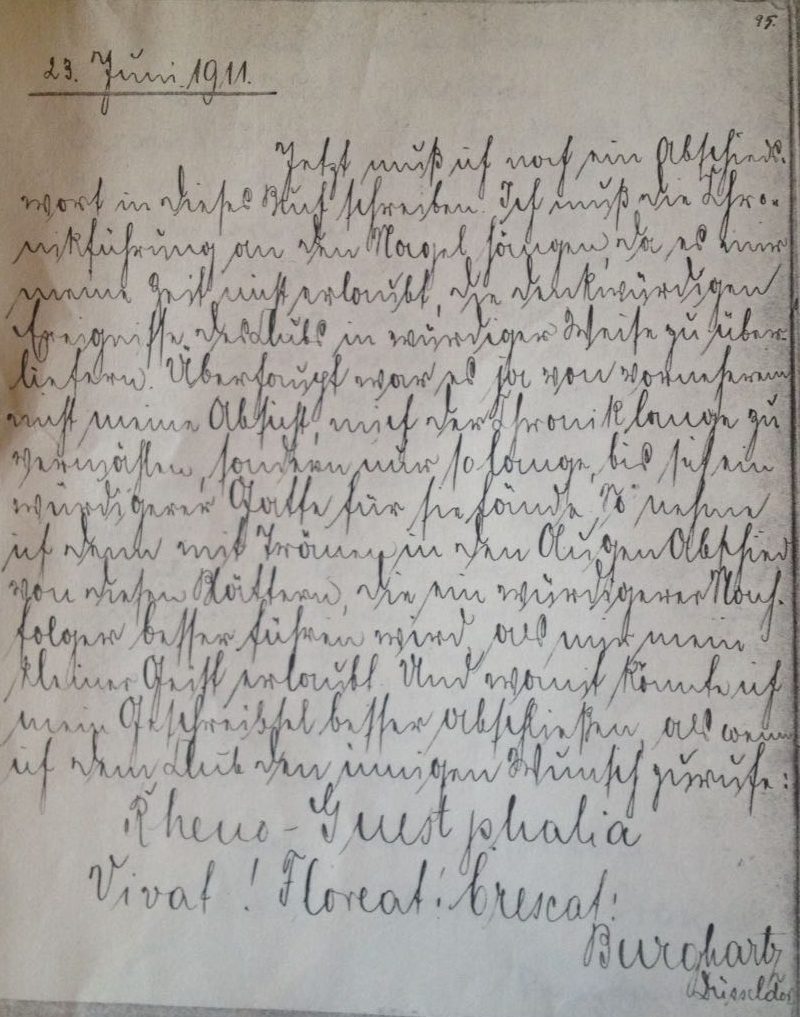 95.
23. Juni 1911.
Jetzt muß ich noch ein Abschieds-
wort in dieses Buch schreiben. Ich muß die Chro-
nikführung an den Nagel hängen, da es mir
meine Zeit nicht erlaubt, die denkwürdigen
Ereignisse des Clubs in würdiger Weise zu über-
liefern. Überhaupt war es ja von vorneherein
nicht meine Absicht, mich der Chronik lange zu
vermählen, sondern nur solange, bis sich ein
würdigerer Gatte für sie fände. So nehme
ich denn mit Tränen in den Augen Abschied
von diesen Blättern, die ein würdigerer Nach-
folger besser führen wird, als mir mein
kleiner Geist erlaubt. Und womit könnte ich
mein Geschreibsel besser abschließen, als wenn
ich dem Club den innigen Wunsch zurufe:
Rheno-Guestphalia
Vivat! Floreat! Crescat!
Burghartz
Düsseldor